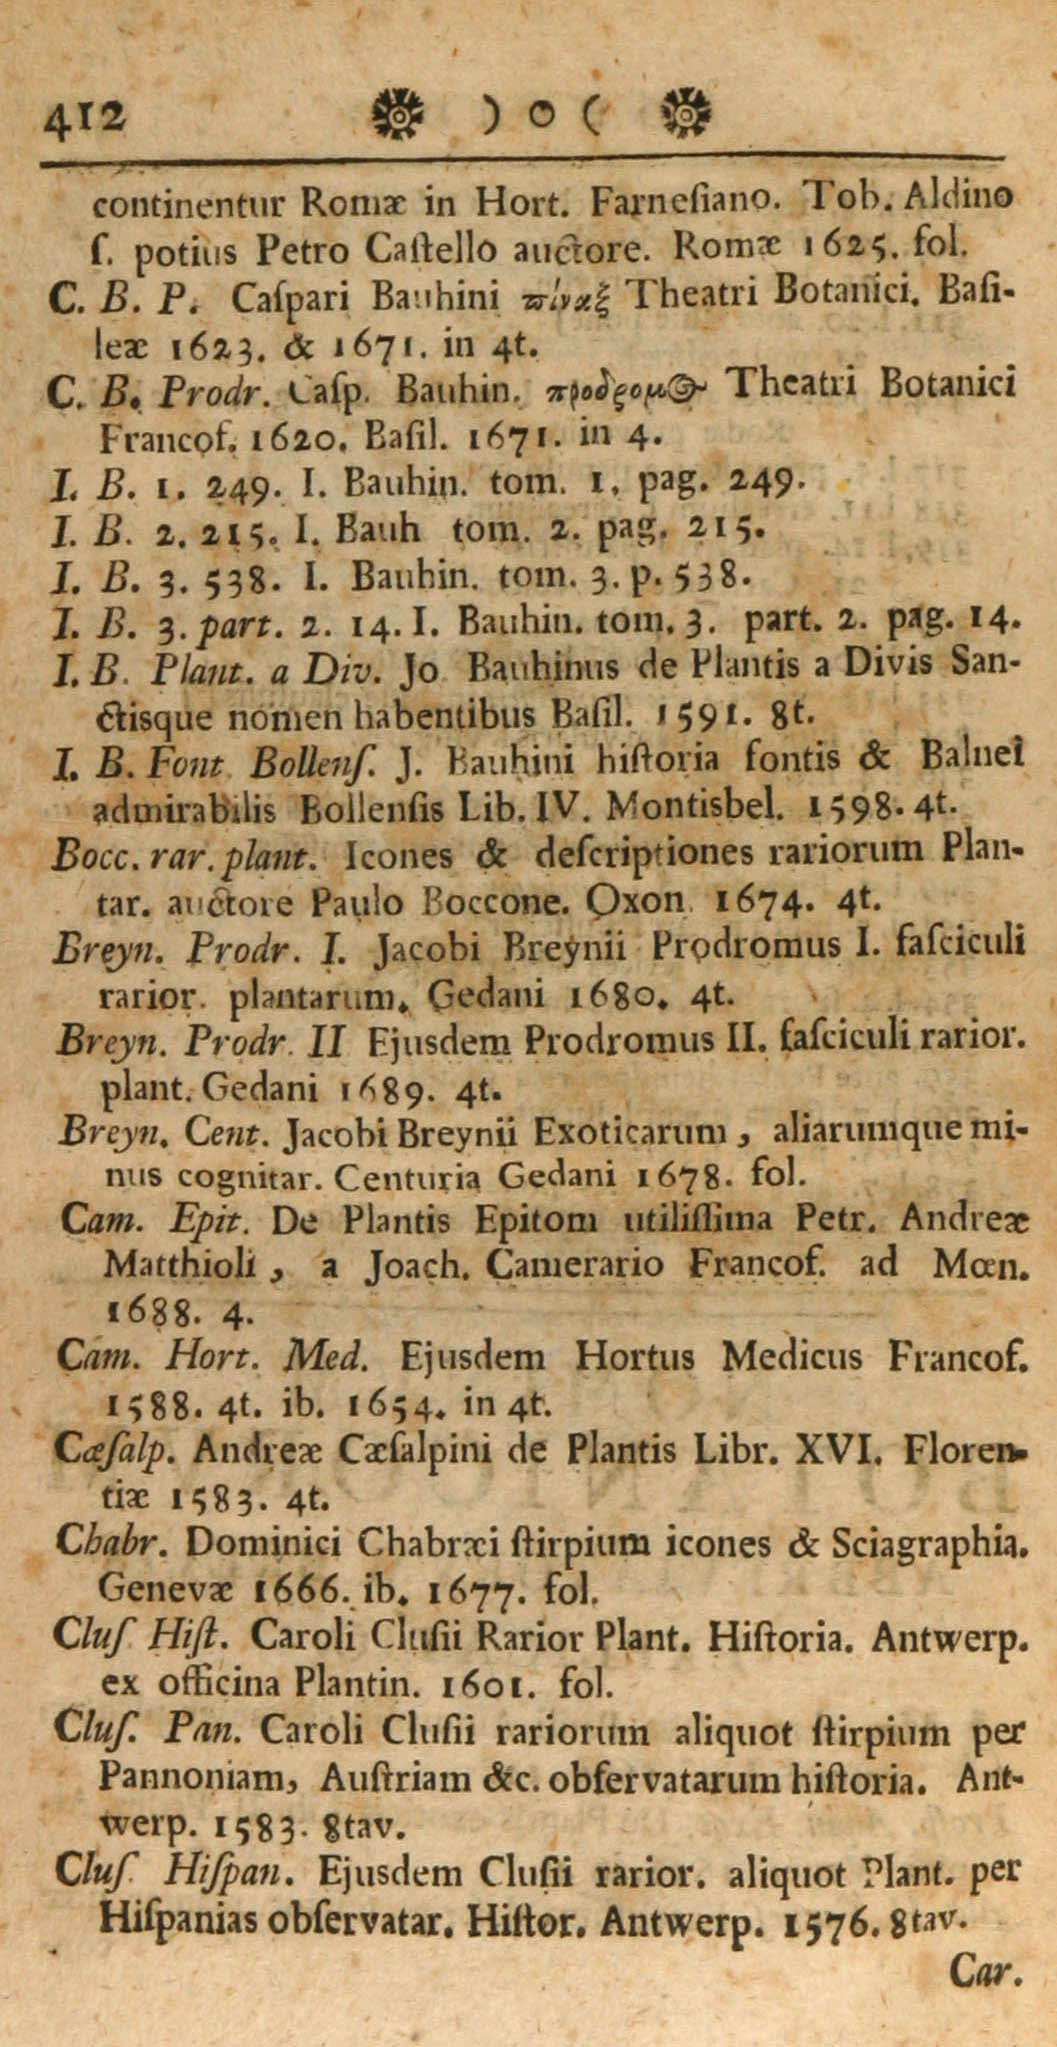 412 ) o (
continentur Romæ in Hort. Farneſiano. Tob. Aldino
ſ. potius Petro Caſtello auctore. Romæ 1625. fol.
C. B. P. Caſpari Bauhini πίναξ Theatri Botanici. Baſi-
leæ 1623. & 1671. in 4t.
C. B. Prodr. Caſp. Bauhin. προδρομος Theatri Botanici
Francof. 1620. Baſil. 1671. in 4.
I. B. 1. 249. I. Bauhin. tom. 1. pag. 249.
I. B. 2. 215. I. Bauh tom. 2. pag. 215.
I. B. 3. 538. I. Bauhin. tom. 3. p. 538.
I. B. 3. part. 2. 14. I. Bauhin. tom. 3. part. 2. pag. 14.
I. B. Plant. a Div. Jo Bauhinus de Plantis a Divis San-
ctisque nomen habentibus Baſil. 1591. 8t.
I. B. Font Bollenſ. J. Bauhini hiſtoria fontis & Balnei
admirabilis Bollenſis Lib. IV. Montisbel. 1598. 4t.
Bocc. rar. plant. Icones & deſcriptiones rariorum Plan-
tar. auctore Paulo Boccone. Oxon. 1674. 4t.
Breyn. Prodr. I. Jacobi Breynii Prodromus I. faſciculi
rarior. plantarum. Gedani 1680. 4t.
Breyn. Prodr. II Ejusdem Prodromus II. faſciculi rarior.
plant. Gedani 1689. 4t.
Breyn. Cent. Jacobi Breynii Exoticarum, aliarumque mi-
nus cognitar. Centuria Gedani 1678. fol.
Cam. Epit. De Plantis Epitom utiliſſima Petr. Andreæ
Matthioli, a Joach. Camerario Francof. ad Mœn.
1688. 4.
Cam. Hort. Med. Ejusdem Hortus Medicus Francof.
1588. 4t. ib. 1654. in 4t.
Cæſalp. Andreæ Cæſalpini de Plantis Libr. XVI. Floren-
tiæ 1583. 4t.
Chabr. Dominici Chabræi ſtirpium icones & Sciagraphia.
Genevæ 1666. ib. 1677. fol.
Cluſ Hiſt. Caroli Cluſii Rarior Plant. Hiſtoria. Antwerp.
ex officina Plantin. 1601. fol.
Cluſ. Pan. Caroli Cluſii rariorum aliquot ſtirpium per
Pannoniam, Auſtriam &c. obſervatarum hiſtoria. Ant-
werp. 1583. 8tav.
Cluſ. Hiſpan. Ejusdem Cluſii rarior. aliquot Plant. per
Hiſpanias obſervatar. Hiſtor. Antwerp. 1576. 8tav.
Car.